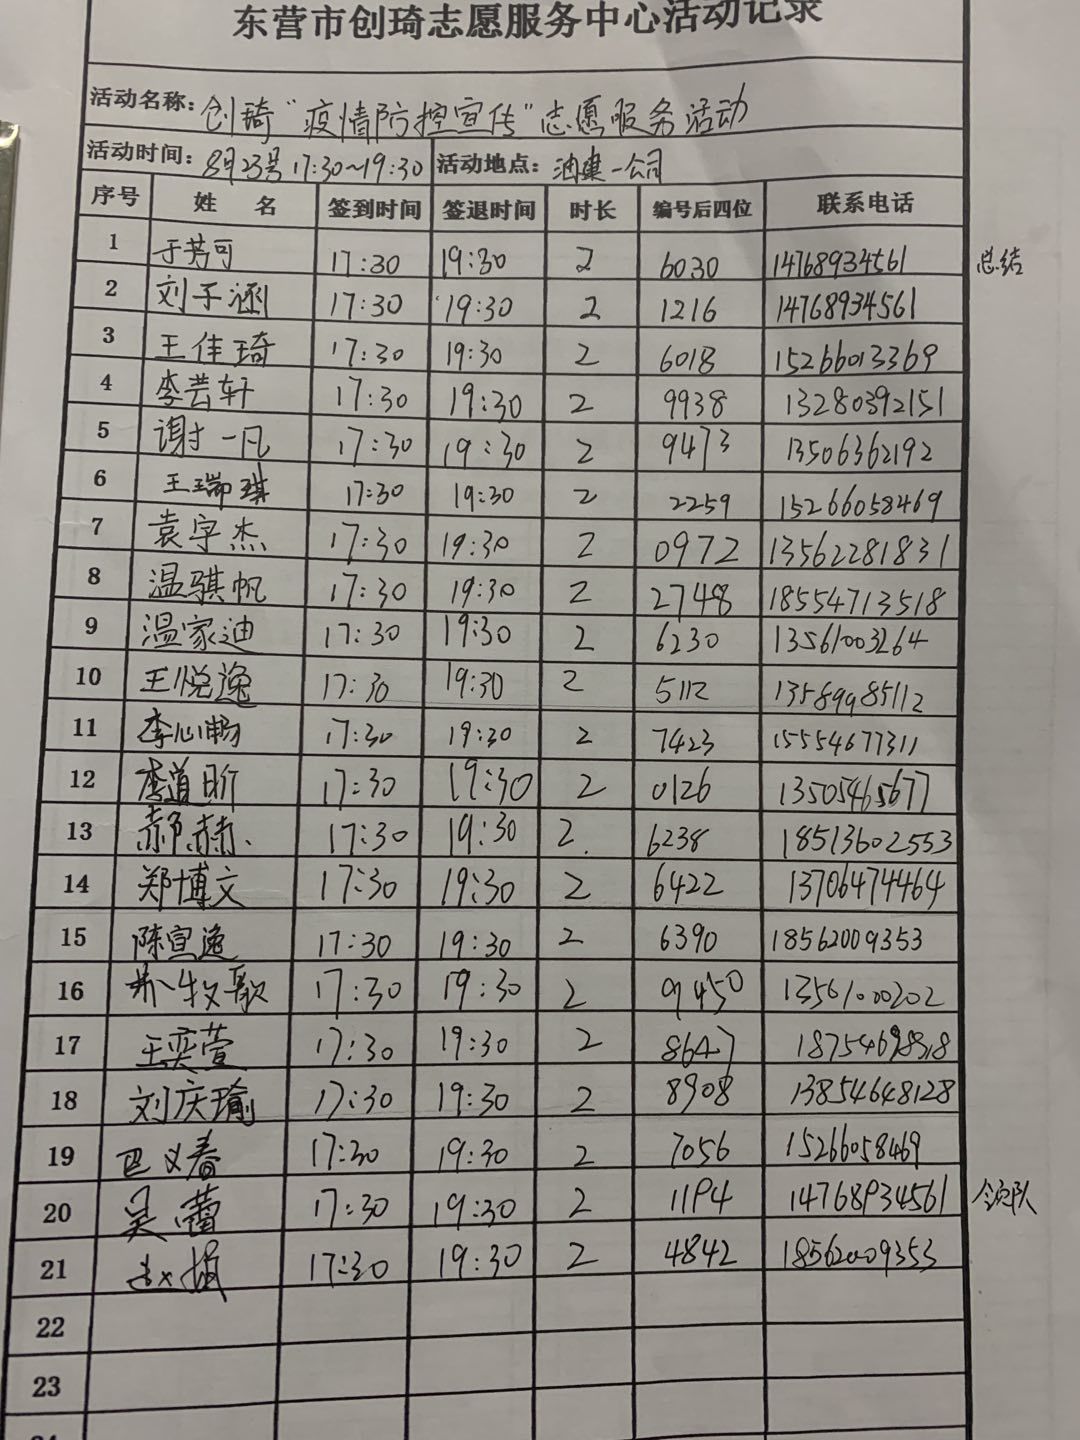 东营市创琦志愿服务中心活动记录
活动名称: 创琦"疫情防控宣传"志愿服务活动
活动时间: 8月23号 17:30~19:30 活动地点: 油建一公司
序号 姓名 签到时间 签退时间 时长 编号后四位 联系电话
1 于芳可 17:30 19:30 2 6030 14768934561 总结
2 刘子涵 17:30 19:30 2 1216 14768934561
3 王佳琦 17:30 19:30 2 6018 15266013369
4 李芸轩 17:30 19:30 2 9938 13280392151
5 谢一凡 17:30 19:30 2 9473 13506362192
6 王瑞琪 17:30 19:30 2 2259 15266058469
7 袁宇杰 17:30 19:30 2 0972 13562281831
8 温骐帆 17:30 19:30 2 2748 18554713518
9 温家迪 17:30 19:30 2 6230 13561003264
10 王悦逸 17:30 19:30 2 5112 13589985112
11 李心畅 17:30 19:30 2 7423 15554677311
12 李道昕 17:30 19:30 2 0126 13505465677
13 郝赫 17:30 19:30 2 6238 18513602553
14 郑博文 17:30 19:30 2 6422 13706474464
15 陈宣逸 17:30 19:30 2 6390 18562009353
16 牧歌 17:30 19:30 2 9450 13561000202
17 王奕萱 17:30 19:30 2 8647 18754698518
18 刘庆瑜 17:30 19:30 2 8908 13854648128
19 巴义春 17:30 19:30 2 7056 15266058469
20 吴蕾 17:30 19:30 2 1194 14768934561 领队
21 赵娟 17:30 19:30 2 4842 18562009353
22
23